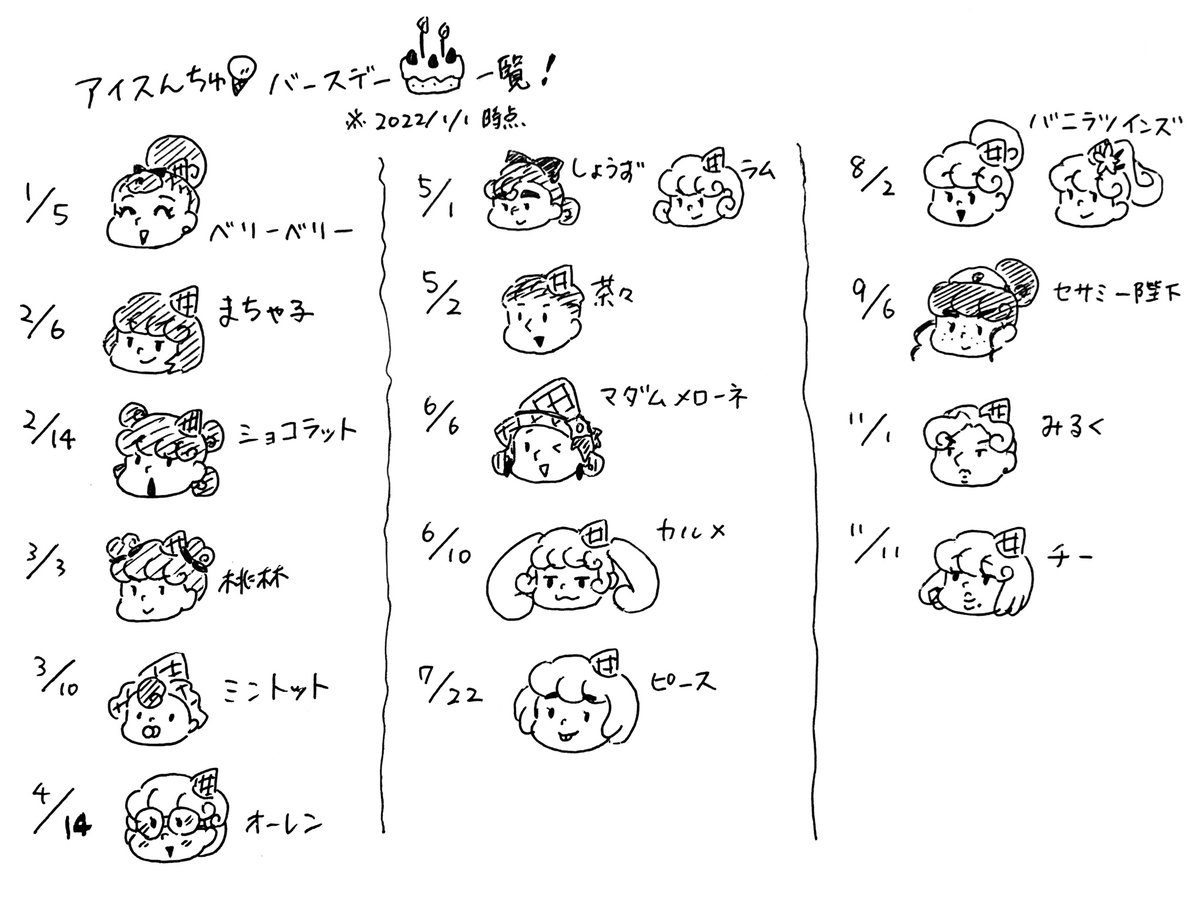 アイスんちゅ バースデー 一覧！
※ 2022/1/1 時点.
1/5 ベリーベリー
2/6 まちゃ子
2/14 ショコラット
3/3 桃林
3/10 ミントット
4/14 オーレン
5/1 しょうず ラム
5/2 茶々
6/6 マダムメローネ
6/10 カルメ
7/22 ピース
8/2 バニラツインズ
9/6 セサミー陛下
11/1 みるく
11/11 チー